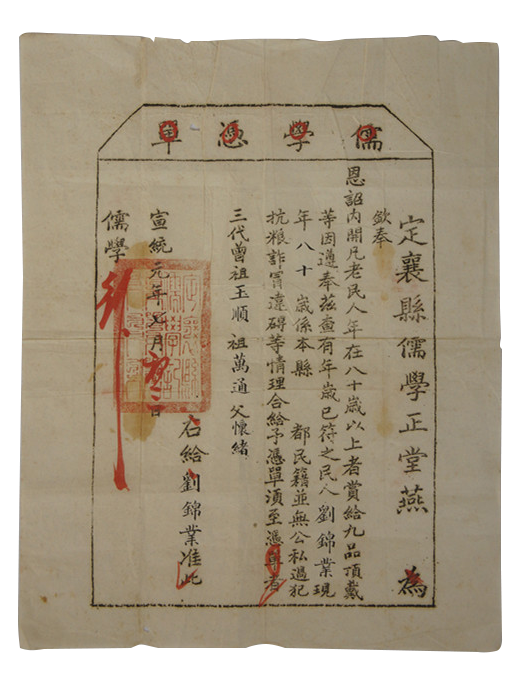 儒學憑單
定襄縣儒學正堂燕 為
欽奉
恩詔內開凡老民人年在八十歲以上者賞給九品頂戴
等因遵奉茲查有年歲已符之民人劉錦業現
年八十歲係本縣 都民籍並無公私過犯
抗粮詐冒違碍等情理合給予憑單須至憑單者
三代曾祖玉順 祖萬通 父懷緒
右給劉錦業准此
宣統元年 月初二日
儒學